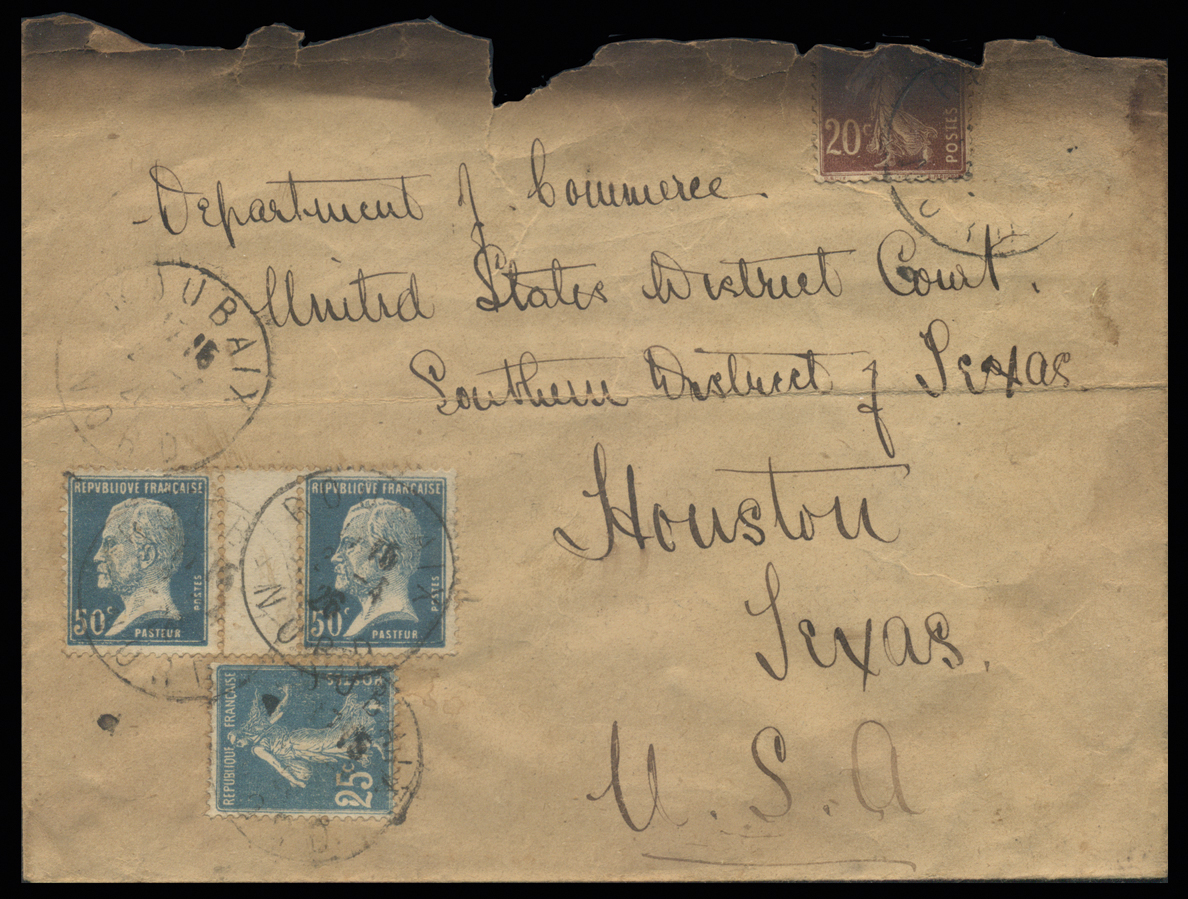 20c
POSTES
Department of Commerce
United States District Court.
Southern District of Texas.
Houston
Texas.
U. S. A
ROUBAIX
NORD
REPVBLIQVE FRANÇAISE
50c
POSTES
PASTEUR
REPVBLIQVE FRANÇAISE
50c
POSTES
PASTEUR
ROUBAIX
NORD
REPUBLIQUE FRANÇAISE
POSTES
25c